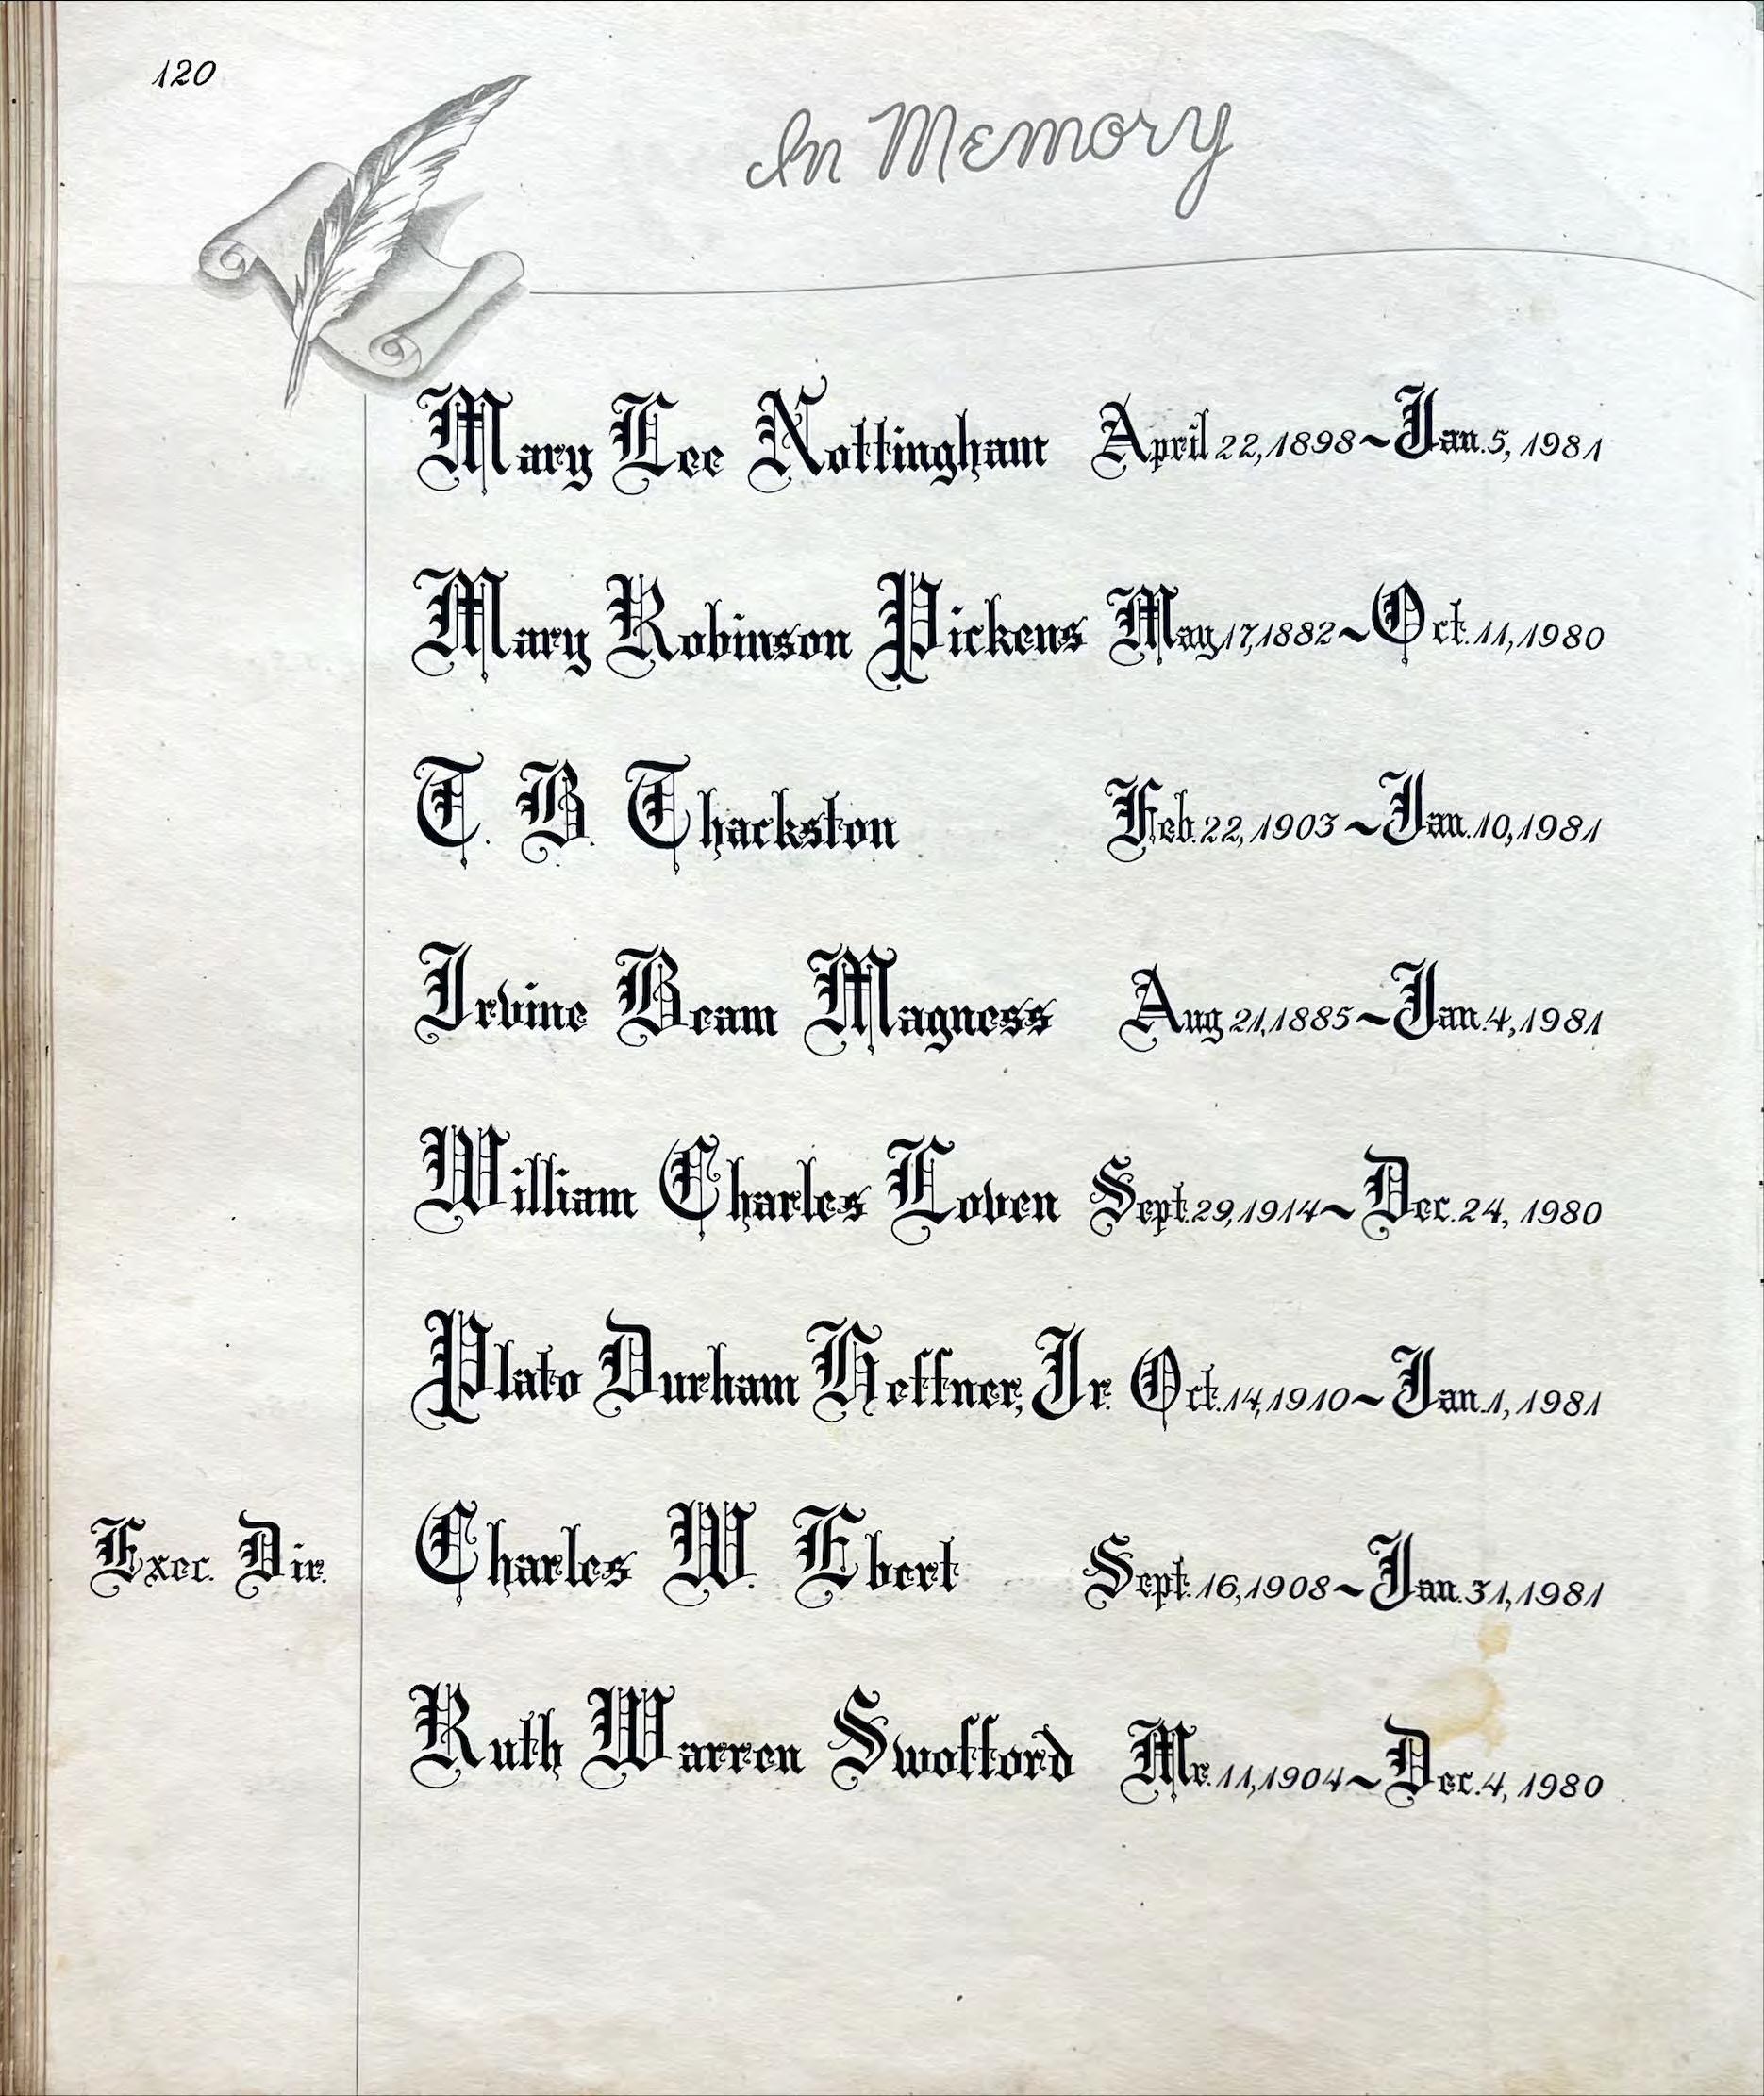 120
In Memory
Mary Lee Nottingham April 22, 1898 ~ Jan. 5, 1981
Mary Robinson Pickens May 17, 1882 ~ Oct. 11, 1980
T. B. Thackston Feb. 22, 1903 ~ Jan. 10, 1981
Irvine Beam Magness Aug 21, 1885 ~ Jan. 4, 1981
William Charles Loven Sept. 29, 1914 ~ Dec. 24, 1980
Plato Durham Heffner, Jr. Oct. 14, 1910 ~ Jan. 1, 1981
Exec. Dir. Charles W. Ebert Sept. 16, 1908 ~ Jan. 31, 1981
Ruth Warren Swofford Mr. 11, 1904 ~ Dec. 4, 1980